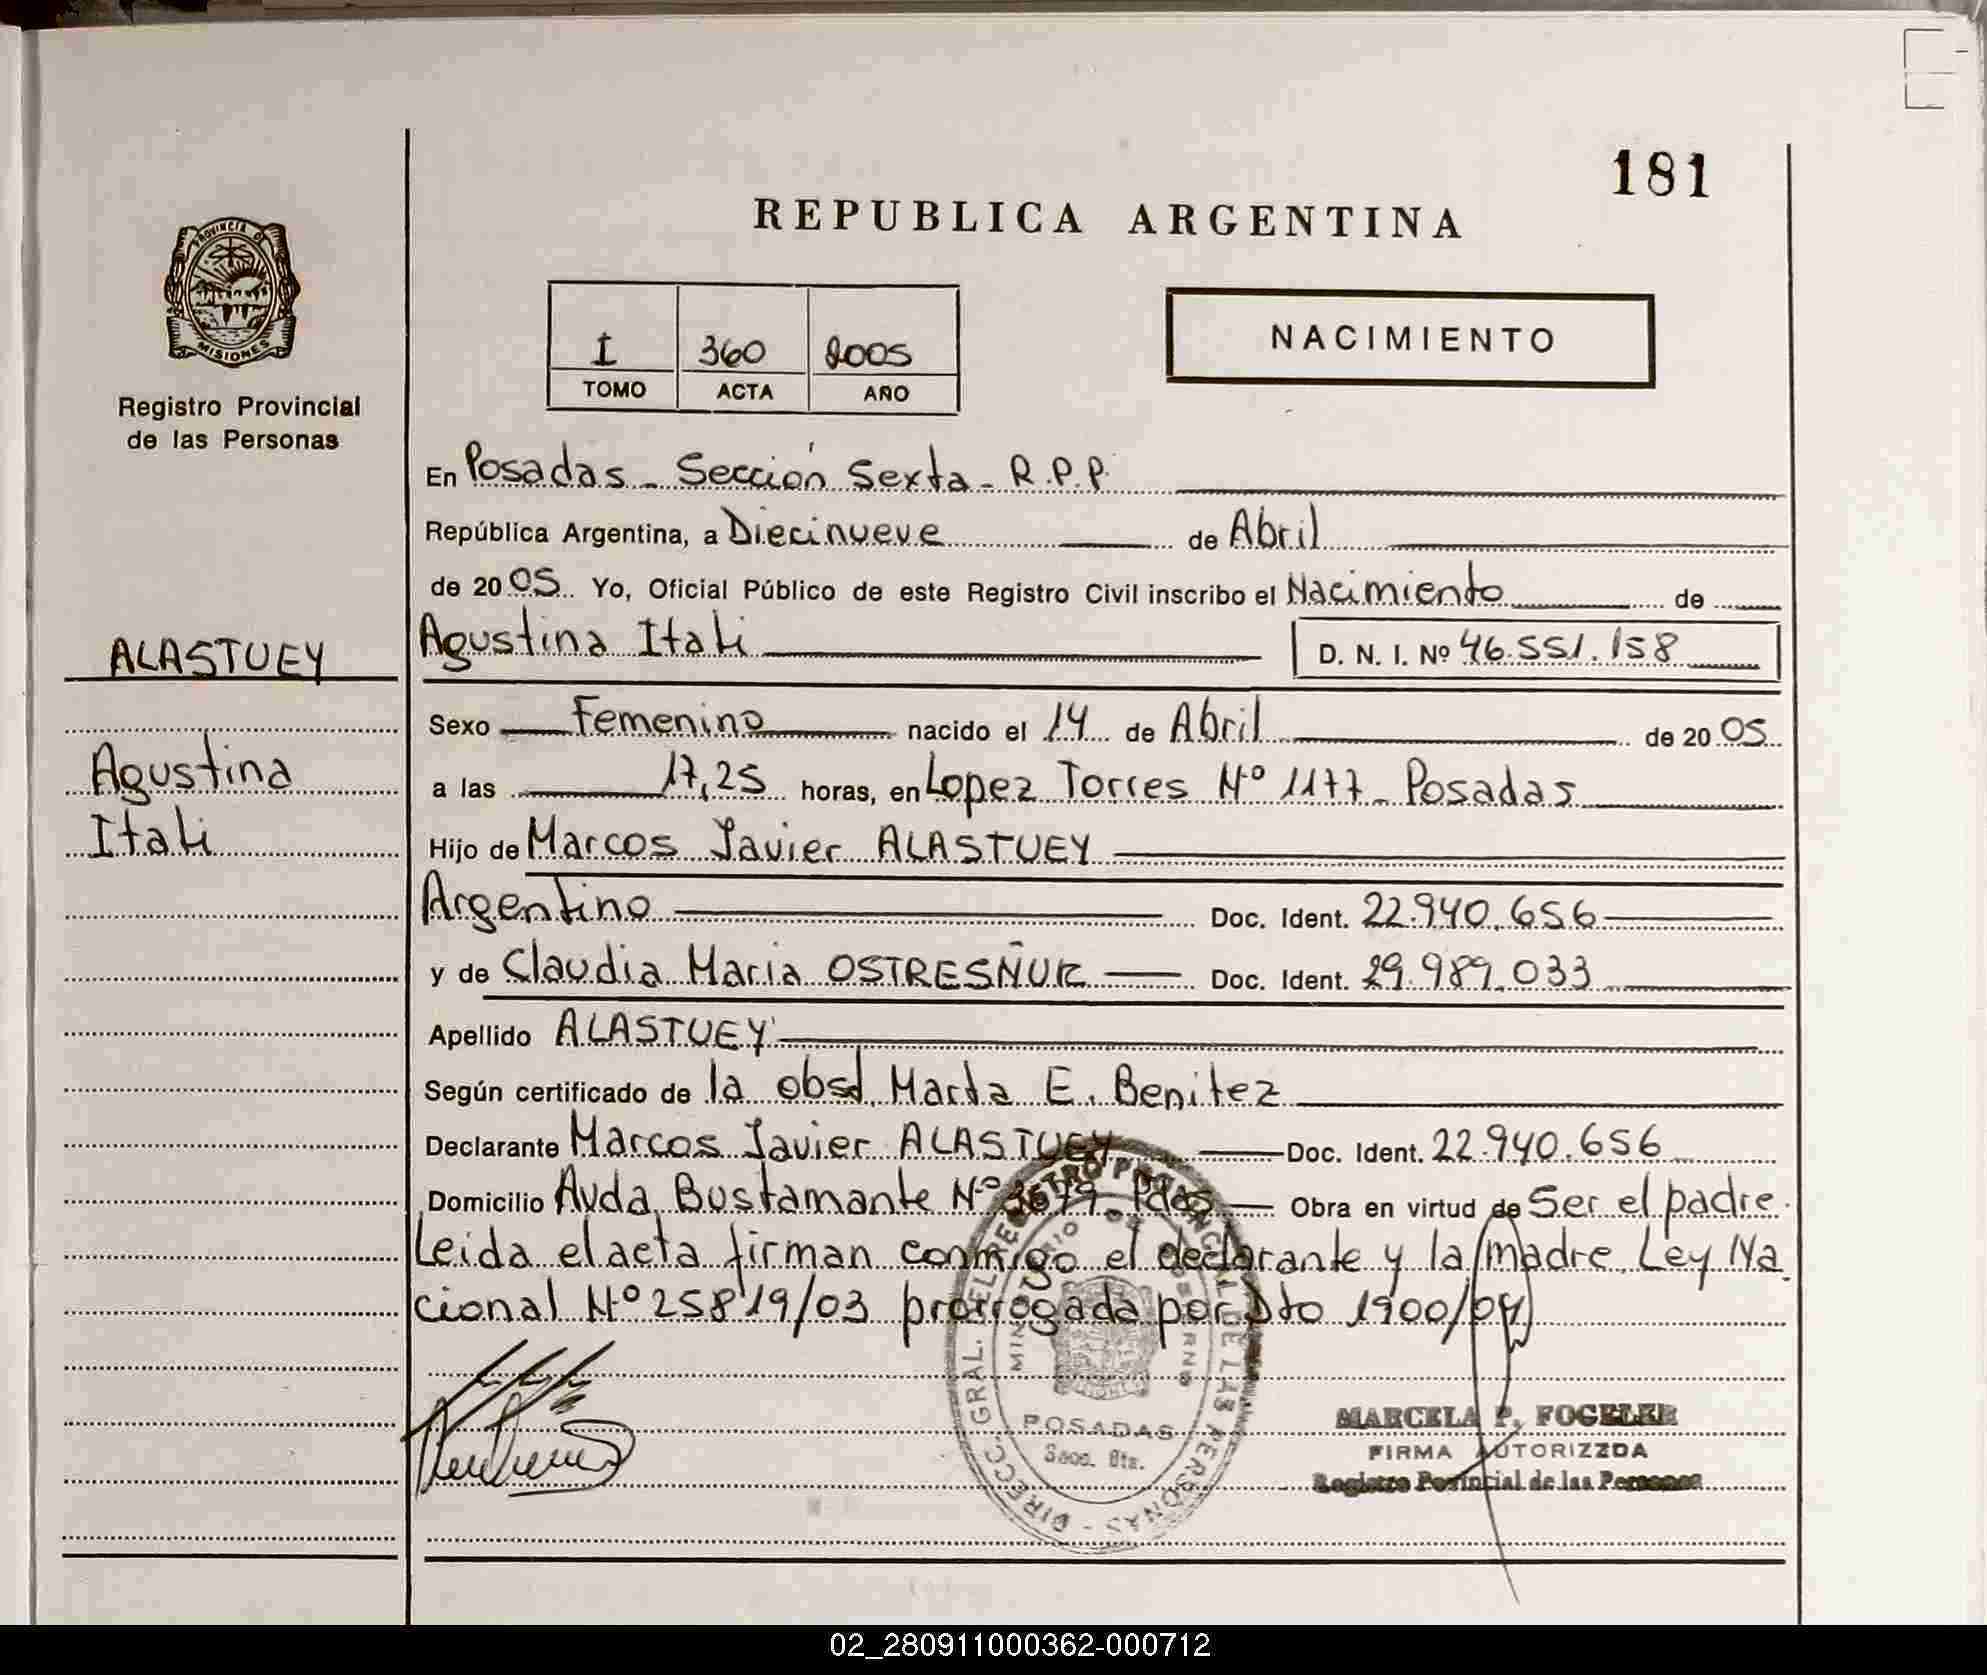 181
REPUBLICA ARGENTINA
PROVINCIA DE MISIONES
Registro Provincial
de las Personas
I 360 2005
TOMO ACTA AÑO
NACIMIENTO
En Posadas - Sección Sexta - R.P.P.
República Argentina, a Diecinueve de Abril
de 2005. Yo, Oficial Público de este Registro Civil inscribo el Nacimiento de
ALASTUEY
Agustina Itali D. N. I. Nº 46.551.158
Sexo Femenino nacido el 14 de Abril de 2005
Agustina
Itali
a las 17,25 horas, en Lopez Torres Nº 1177 - Posadas
Hijo de Marcos Javier ALASTUEY
Argentino Doc. Ident. 22.940.656
y de Claudia Maria OSTRESÑUK Doc. Ident. 29.989.033
Apellido ALASTUEY
Según certificado de la obst. Marta E. Benitez
Declarante Marcos Javier ALASTUEY Doc. Ident. 22.940.656
Domicilio Avda. Bustamante Nº Pdas Obra en virtud de Ser el padre.
Leida el acta firman conmigo el declarante y la madre. Ley Na
cional Nº 25819/03 prorrogada por Dto 1900/04
DIRECC. GRAL. DEL REGISTRO PROVINCIAL DE LAS PERSONAS
MINISTERIO DE GOBIERNO
POSADAS
Secc. 6ta.
MARCELA P. FOGELER
FIRMA AUTORIZZDA
Registro Povincial de las Personas
02_280911000362-000712